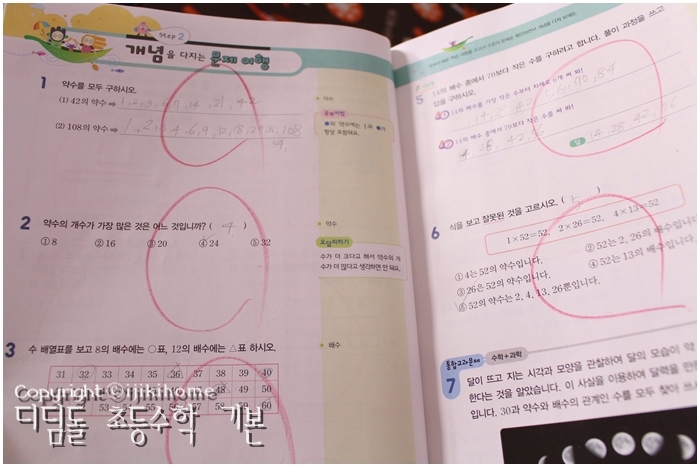 Step 2
개념을 다지는 문제 이행
1 약수를 모두 구하시오.
(1) 42의 약수 ⇒
(2) 108의 약수 ⇒
약수
의 약수에는 1과
항상 포함돼요.
2 약수의 개수가 가장 많은 것은 어느 것입니까? ( 4 )
①8 ②16 ③20 ④24 ⑤32
약수
오답피하기
수가 더 크다고 해서 약수의 개
수가 더 많다고 생각하면 안 돼요.
3 수 배열표를 보고 8의 배수에는 ○표, 12의 배수에는 △표 하시오.
배수
31 32 33 34 35 36 37 38 39 40
48 49 50
53 57 58 59 60
5 14의 배수 중에서 70보다 작은 수를 구하려고 합니다. 풀이 과정을 쓰고
답을 구하시오.
14의 배수를 가장 작은 수부터 차례로 6개 써 봐!
14의 배수 중에서 70보다 작은 수를 써 봐!
답 14, 28, 42, 56
6 식을 보고 잘못된 것을 고르시오. ( 5 )
1×52=52, 2×26=52, 4×13=52
①4는 52의 약수입니다.
②52는 2, 26의 배수입니다.
③26은 52의 약수입니다.
④52는 13의 배수입니다.
⑤52의 약수는 2, 4, 13, 26뿐입니다.
통합교과문제 수학+과학
7 달이 뜨고 지는 시각과 모양을 관찰하여 달의 모습이 약
한다는 것을 알았습니다. 이 사실을 이용하여 달력을 만든
입니다. 30과 약수와 배수의 관계인 수를 모두 찾아 쓰
Copyright ⓒijikihome
디딤돌 초등수학 기본